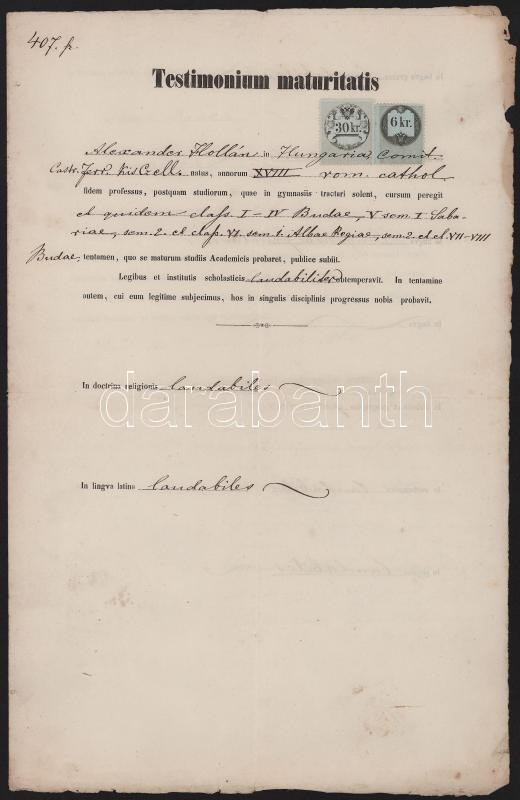 407. p.
Testimonium maturitatis
30 kr.
6 kr.
Alexander Hollán in Hungariae Comit.
Castr. Ferr. Kis Czell. natus, annorum XVIII rom. cathol
fidem professus, postquam studiorum, quae in gymnasiis tractari solent, cursum peregit
et quidem class. I–IV Budae, V sem. I Saba-
riae, sem. 2. et class. VI. sem. 1. Albae Regiae, sem. 2. et cl. VII–VIII
Budae, tentamen, quo se maturum studiis Academicis probaret, publice subiit.
Legibus et institutis scholasticis laudabiliter obtemperavit. In tentamine
autem, cui eum legitime subjecimus, hos in singulis disciplinis progressus nobis probavit.
In doctrina religionis laudabiles
darabanth
In lingva latina laudabiles